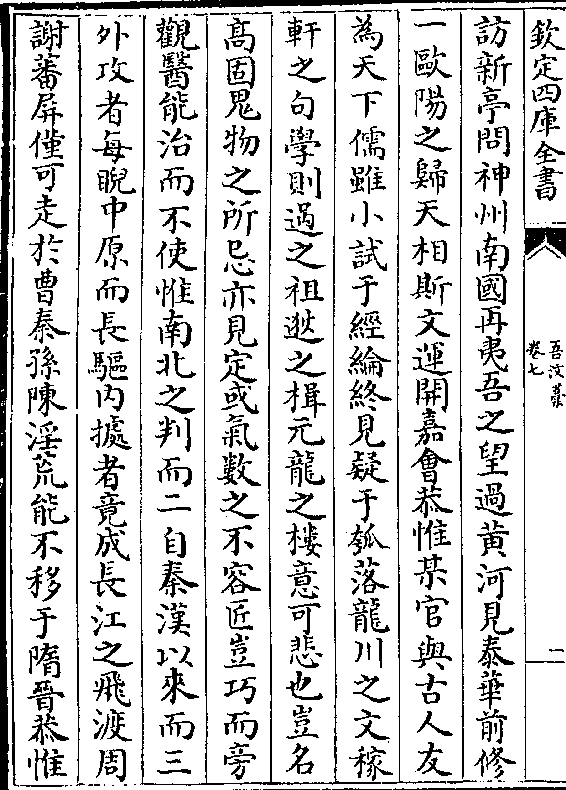 欽定四庫全書
吾汶藁
卷七
二
訪新亭問神州南國再夷吾之望過黃河見泰華前修
一歐陽之歸天相斯文運開嘉會恭惟某官與古人友
為天下儒雖小試于經綸終見疑于瓠落龍川之文稼
軒之句學則過之祖逖之楫元龍之樓意可悲也豈名
高固鬼物之所忌亦見定或氣數之不容匠豈巧而旁
觀醫能治而不使惟南北之判而二自秦漢以來而三
外攻者每睨中原而長驅内據者竟成長江之飛渡周
謝蕃屏僅可走於曹秦孫陳淫荒能不移于隋晉恭惟